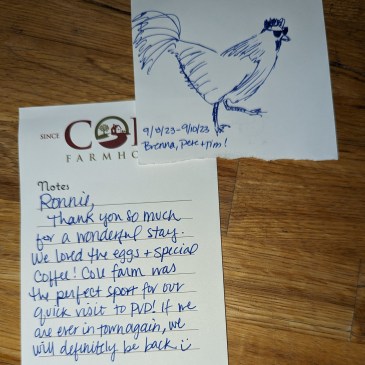 9/8/23-9/10/23
Brenna, Pete + Tim!
SINCE
CO
FARMHO
Notes
Ronnie,
Thank you so much
for a wonderful stay.
We loved the eggs + special
coffee! Cole farm was
the perfect sport for our
quick visit to PVD! If we
are ever in town again, we
will definitely be back :)